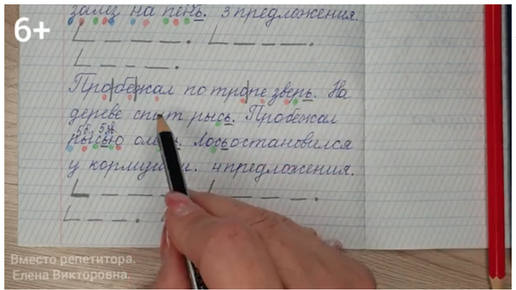 6+
залез на пень. 3 предложения.
Пробежал по тропе зверь. На
дереве спит рысь. Пробежал
5б, 5зв
рысью олень. Лось остановился
у кормушки. 4 предложения.
Вместо репетитора.
Елена Викторовна.